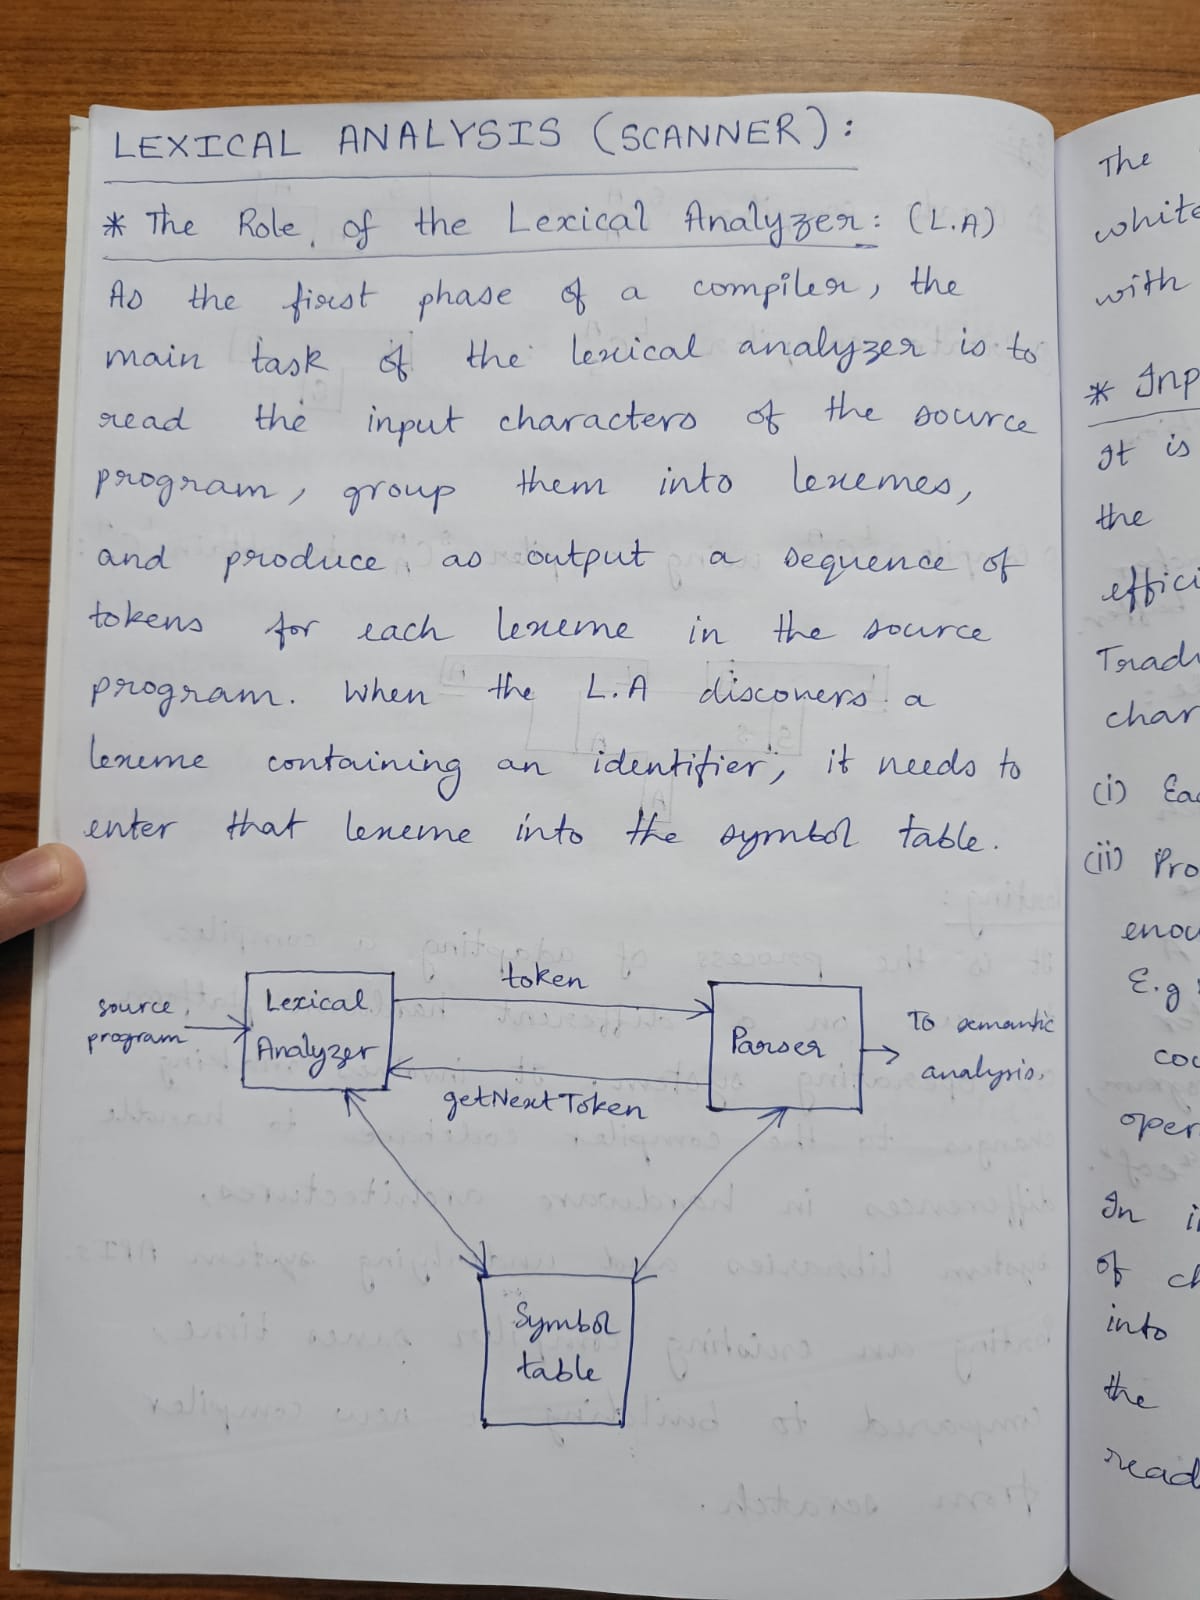 LEXICAL ANALYSIS (SCANNER) :
* The Role of the Lexical Analyzer : (L.A)
As the first phase of a compiler, the
main task of the lexical analyzer is to
read the input characters of the source
program, group them into lexemes,
and produce as output a sequence of
tokens for each lexeme in the source
program. When the L.A discovers a
lexeme containing an identifier, it needs to
enter that lexeme into the symbol table.
source
program
Lexical
Analyzer
token
getNextToken
Parser
To semantic
analysis.
Symbol
table
The
white
with
* Inp
It is
the
effici
Trad
char
(i) Eac
(ii) Pro
enou
E.g :
cou
oper
In i
of ch
into
the
read